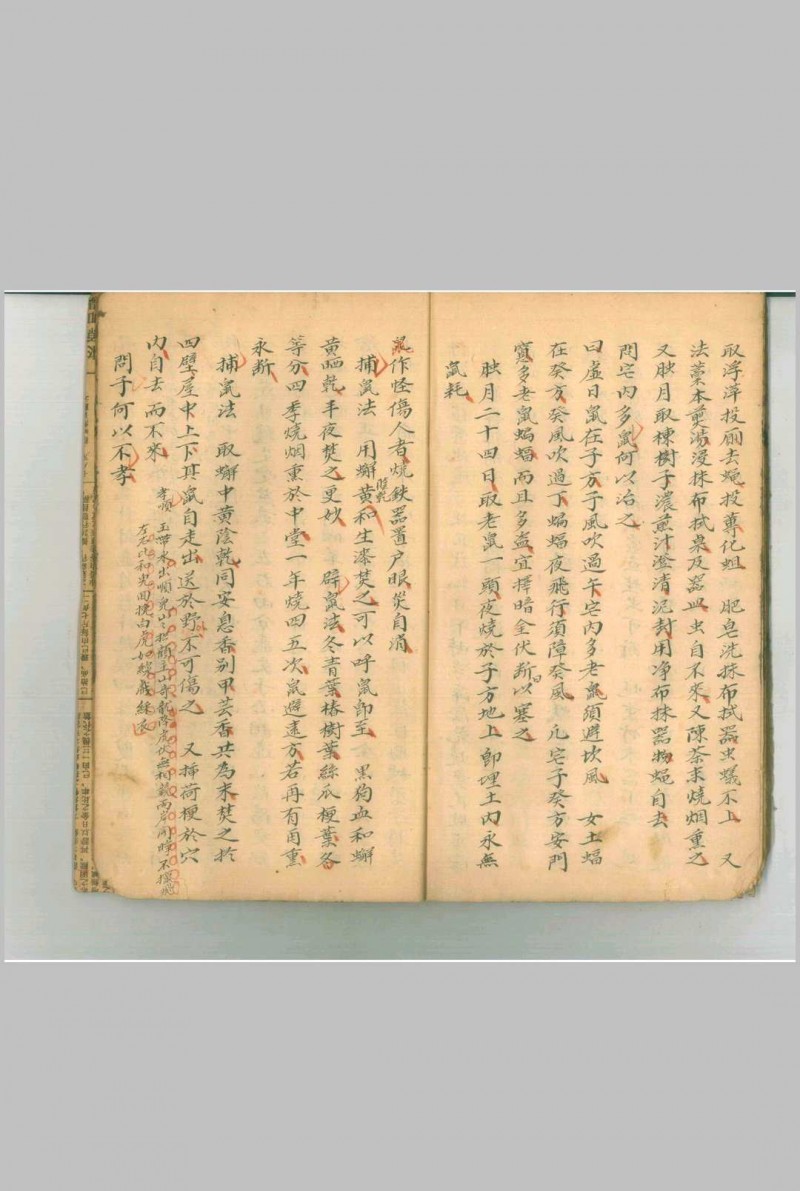 取浮萍投廁去蠅投蓴化蛆　肥皂洗抹布拭器虫蟻不上　又
法藁本煎湯浸抹布拭桌及器皿虫自不來又陳茶末燒烟熏之
又腊月取楝樹子濃煎汁澄清泥封用净布抹器物蠅自去
問宅內多鼠何以治之
曰虛日鼠在子方子風吹過午宅內多老鼠須避坎風　女土蝠
在癸方癸風吹過丁蝙蝠夜飛行須障癸風　凡宅子癸方安門
竇多老鼠蝙蝠而且多盗宜擇暗金伏断日以塞之
腊月二十四日取老鼠一頭夜燒於子方地上即埋土內永無
鼠耗
鼠作怪傷人者燒鉄器置户眼災自消
捕鼠法　用蠏黄和生漆焚之可以呼鼠即至　黑狗血和蠏
黄晒乾半夜焚之更妙　辟鼠法冬青葉椿樹葉絲瓜梗葉各
等分四季燒烟熏於中堂一年燒四五次鼠避遠方若再有再熏
永断
捕鼠法　取蠏中黄陰乾同安息香別甲芸香共為末焚之於
四壁屋中上下其鼠自走出送於野不可傷之　又挿荷梗於穴
內自去而不來
問子何以不孝